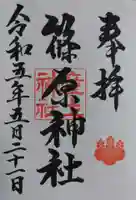 奉拝
篠原神社
令和五年五月二十一日